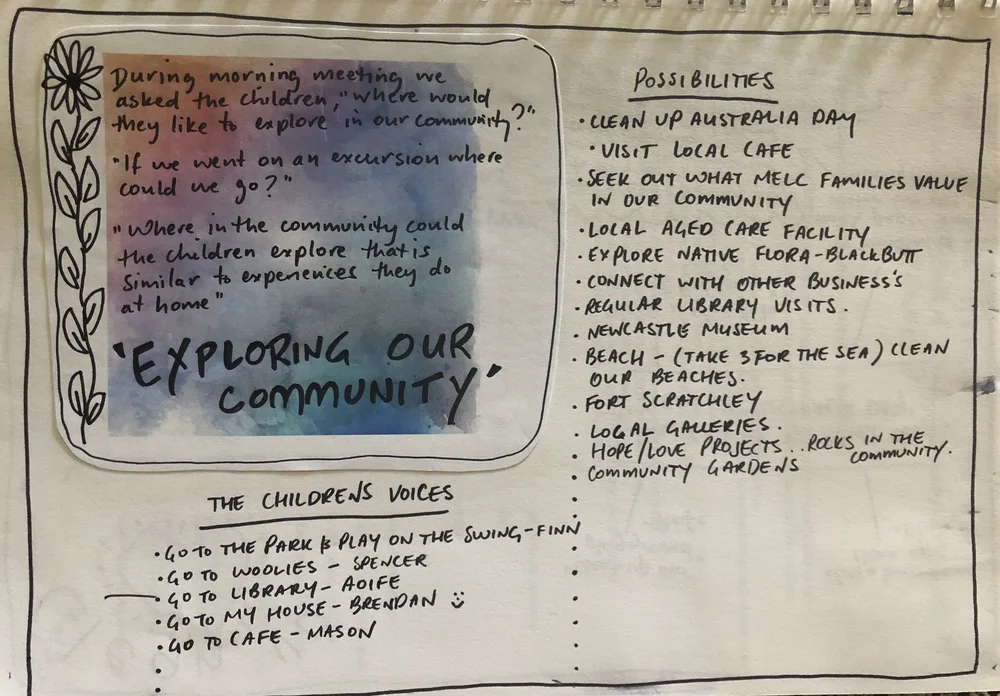 During morning meeting we
asked the children, "where would
they like to explore in our community?"
"If we went on an excursion where
could we go?"
"Where in the community could
the children explore that is
similar to experiences they do
at home"
'EXPLORING OUR
COMMUNITY'
THE CHILDRENS VOICES
• GO TO THE PARK & PLAY ON THE SWING - FINN
• GO TO WOOLIES - SPENCER
• GO TO LIBRARY - AOIFE
• GO TO MY HOUSE - BRENDAN
• GO TO CAFE - MASON
POSSIBILITIES
• CLEAN UP AUSTRALIA DAY
• VISIT LOCAL CAFE
• SEEK OUT WHAT MELC FAMILIES VALUE
IN OUR COMMUNITY
• LOCAL AGED CARE FACILITY
• EXPLORE NATIVE FLORA - BLACKBUTT
• CONNECT WITH OTHER BUSINESS'S
• REGULAR LIBRARY VISITS.
• NEWCASTLE MUSEUM
• BEACH - (TAKE 3 FOR THE SEA) CLEAN
OUR BEACHES.
• FORT SCRATCHLEY
• LOCAL GALLERIES.
• HOPE/LOVE PROJECTS... ROCKS IN THE
COMMUNITY.
• COMMUNITY GARDENS